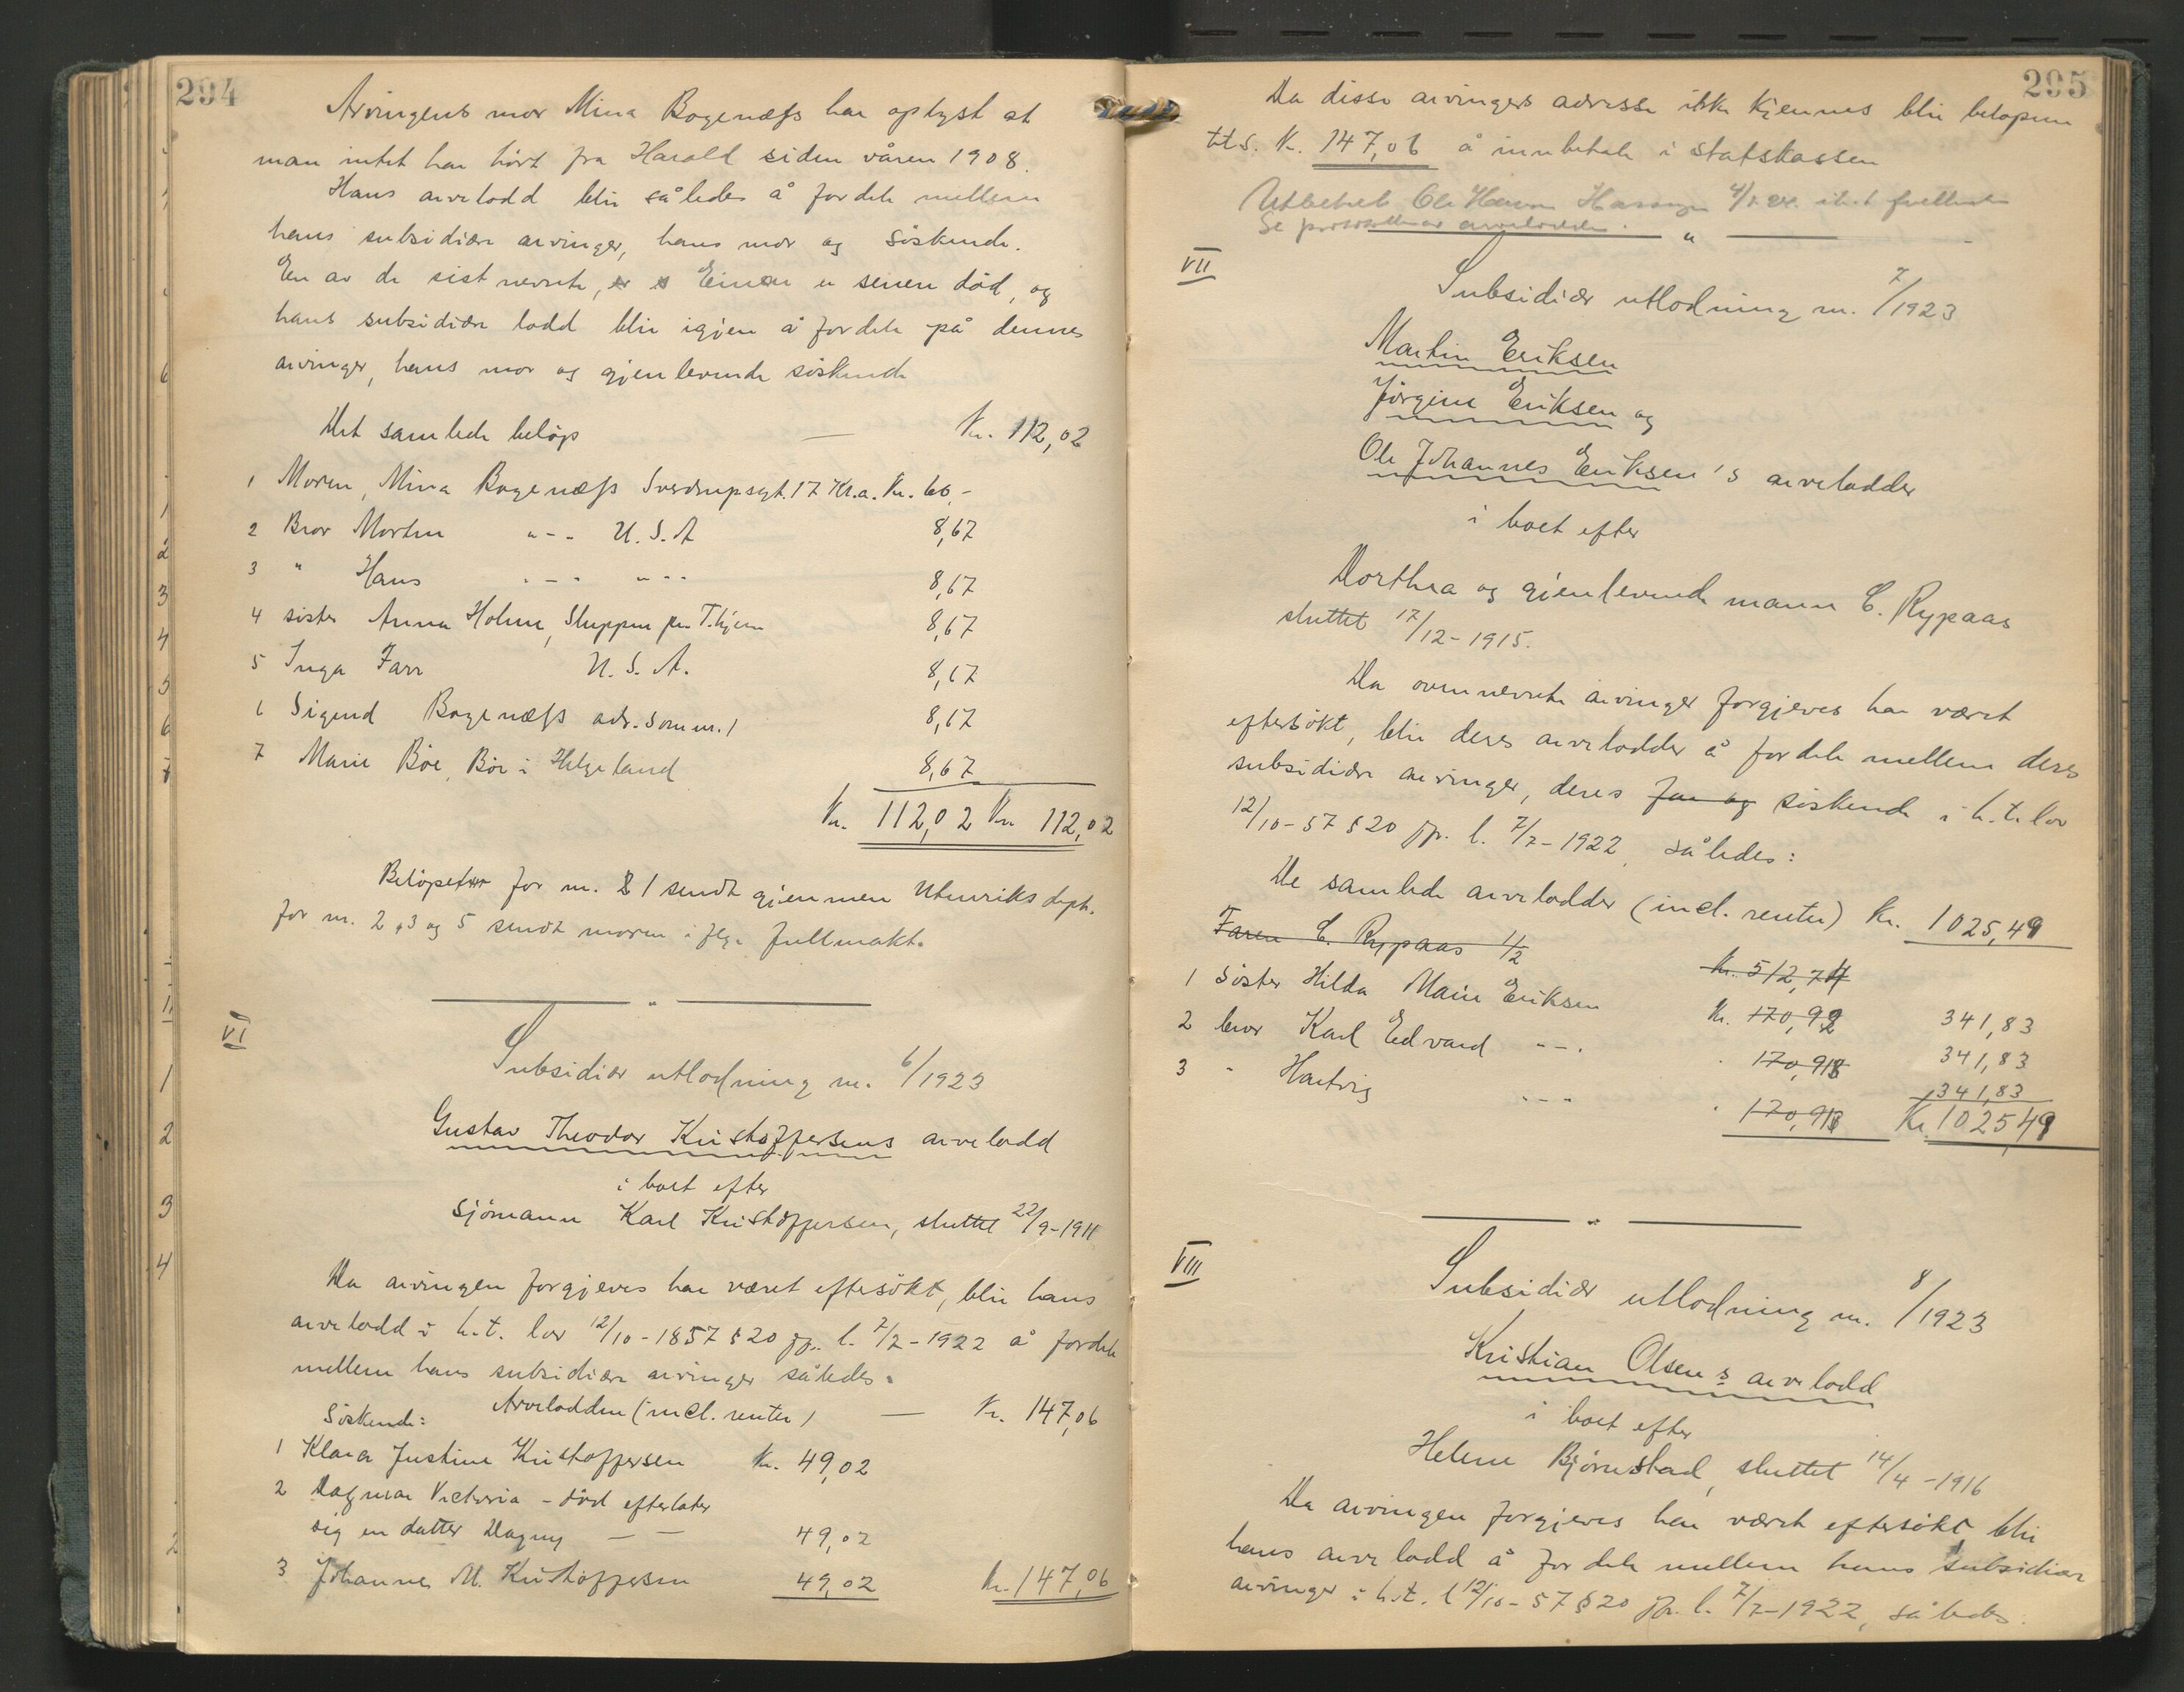 294
Arvingens mor Mina Bogenæss har oplyst at
man intet har hört fra Harald siden våren 1908.
Hans arvelodd blir således å fordele mellem
hans subsidiære arvinger, hans mor og söskende.
En av de sist nevnte, Einar er senere död, og
hans subsidiære lodd blir igjen å fordele på dennes
arvinger, hans mor og gjenlevende söskende
Det samlede belöp — Kr. 112,02
1 Moren, Mina Bogenæss Sverdrupsgt. 17 Kr.a. Kr. 60,-
2 Bror Morten "-- U.S.A 8,67
3 " Hans "-- "-- 8,67
4 söster Anna Holm, Sluppen pr T.hjem 8,67
5 Inga Farr U.S.A. 8,67
6 Sigurd Bogenæss adr. som nr. 1 8,67
7 Marie Böe, Böe i Helgeland 8,67
Kr. 112,02 Kr. 112,02
Belöpet for nr. 1 sendt gjennem Utenriks dept.
for nr. 2, 3 og 5 sendt moren i flg. fullmakt.
VI
Subsidiær utlodning nr. 6/1923
Gustav Theodor Kristoffersens arvelodd
i boet efter
Sjömann Karl Kristoffersen, sluttet 22/9-1911
Da arvingen forgjeves har været eftersökt, blir hans
arvelodd i h.t. lov 12/10-1857 § 20 jfr. l. 7/7-1922 å fordele
mellem hans subsidiære arvinger således:
Arvelodden (incl. renter) — Kr. 147,06
Söskende:
1 Klara Justine Kristoffersen Kr. 49,02
2 Dagmar Victoria - död efterlater
sig en datter Dagny — — 49,02
3 Johannes M. Kristoffersen 49,02 Kr. 147,06
295
Da disse arvingers adresse ikke kjennes blir belöpene
tils. Kr. 147,06 å innbetale i statskassen
Utbetalt Ole
Se arvelodder.
VII
Subsidiær utlodning nr. 7/1923
Martin Eriksen
Jörgine Eriksen og
Ole Johannes Eriksen's arvelodder
i boet efter
Dorthea og gjenlevende mann C. Rypaas
sluttet 17/12-1915.
Da ovennevnte arvinger forgjeves har været
eftersökt, blir deres arvelodder å fordele mellem deres
subsidiære arvinger, deres far og söskende i h.t. lov
12/10-57 § 20 jfr. l. 7/7-1922, således:
De samlede arvelodder (incl. renter) Kr. 1025,49
Faren C. Rypaas 1/2 Kr. 512,74
1 Söster Hilda Marie Eriksen Kr. 170,92 341,83
2 bror Karl Edvard "-- 170,91 341,83
3 " Hartvig "-- 170,91 341,83
Kr. 1025,49
VIII
Subsidiær utlodning nr. 8/1923
Kristian Olsens arvelodd
i boet efter
Helene Bjørnstad, sluttet 14/4-1916
Da arvingen forgjeves har været eftersökt blir
hans arvelodd å fordele mellem hans subsidiære
arvinger i h.t. l 12/10-57 § 20 jfr. l. 7/7-1922, således: